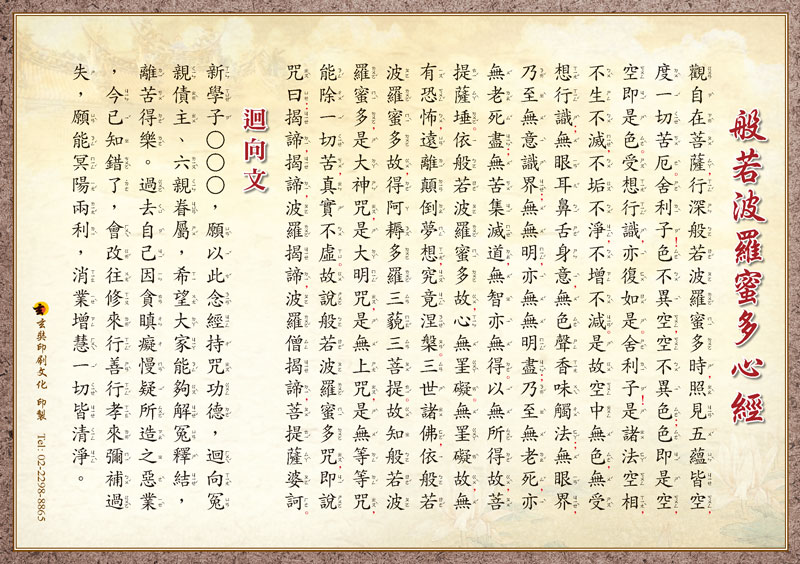 般若波羅蜜多心經
觀自在菩薩行深般若波羅蜜多時照見五蘊皆空
度一切苦厄舍利子!色不異空空不異色色即是空
空即是色受想行識亦復如是舍利子!是諸法空相
不生不滅不垢不淨不增不減是故空中無色無受
想行識無眼耳鼻舌身意無色聲香味觸法無眼界
乃至無意識界無無明亦無無明盡乃至無老死亦
無老死盡無苦集滅道無智亦無得以無所得故菩
提薩埵依般若波羅蜜多故心無罣礙無罣礙故無
有恐怖遠離顛倒夢想究竟涅槃三世諸佛依般若
波羅蜜多故得阿耨多羅三藐三菩提故知般若波
羅蜜多是大神咒是大明咒是無上咒是無等等咒
能除一切苦真實不虛故說般若波羅蜜多咒即說
咒曰揭諦揭諦波羅揭諦波羅僧揭諦菩提薩婆訶
迴向文
新學子〇〇〇,願以此念經持咒功德,迴向冤
親債主、六親眷屬,希望大家能夠解冤釋結,
離苦得樂。過去自己因貪瞋癡慢疑所造之惡業
,今已知錯了,會改往修來行善行孝來彌補過
失,願能冥陽兩利,消業增慧一切皆清淨。
玄奘印刷文化 印製 Tel:02-2298-8865